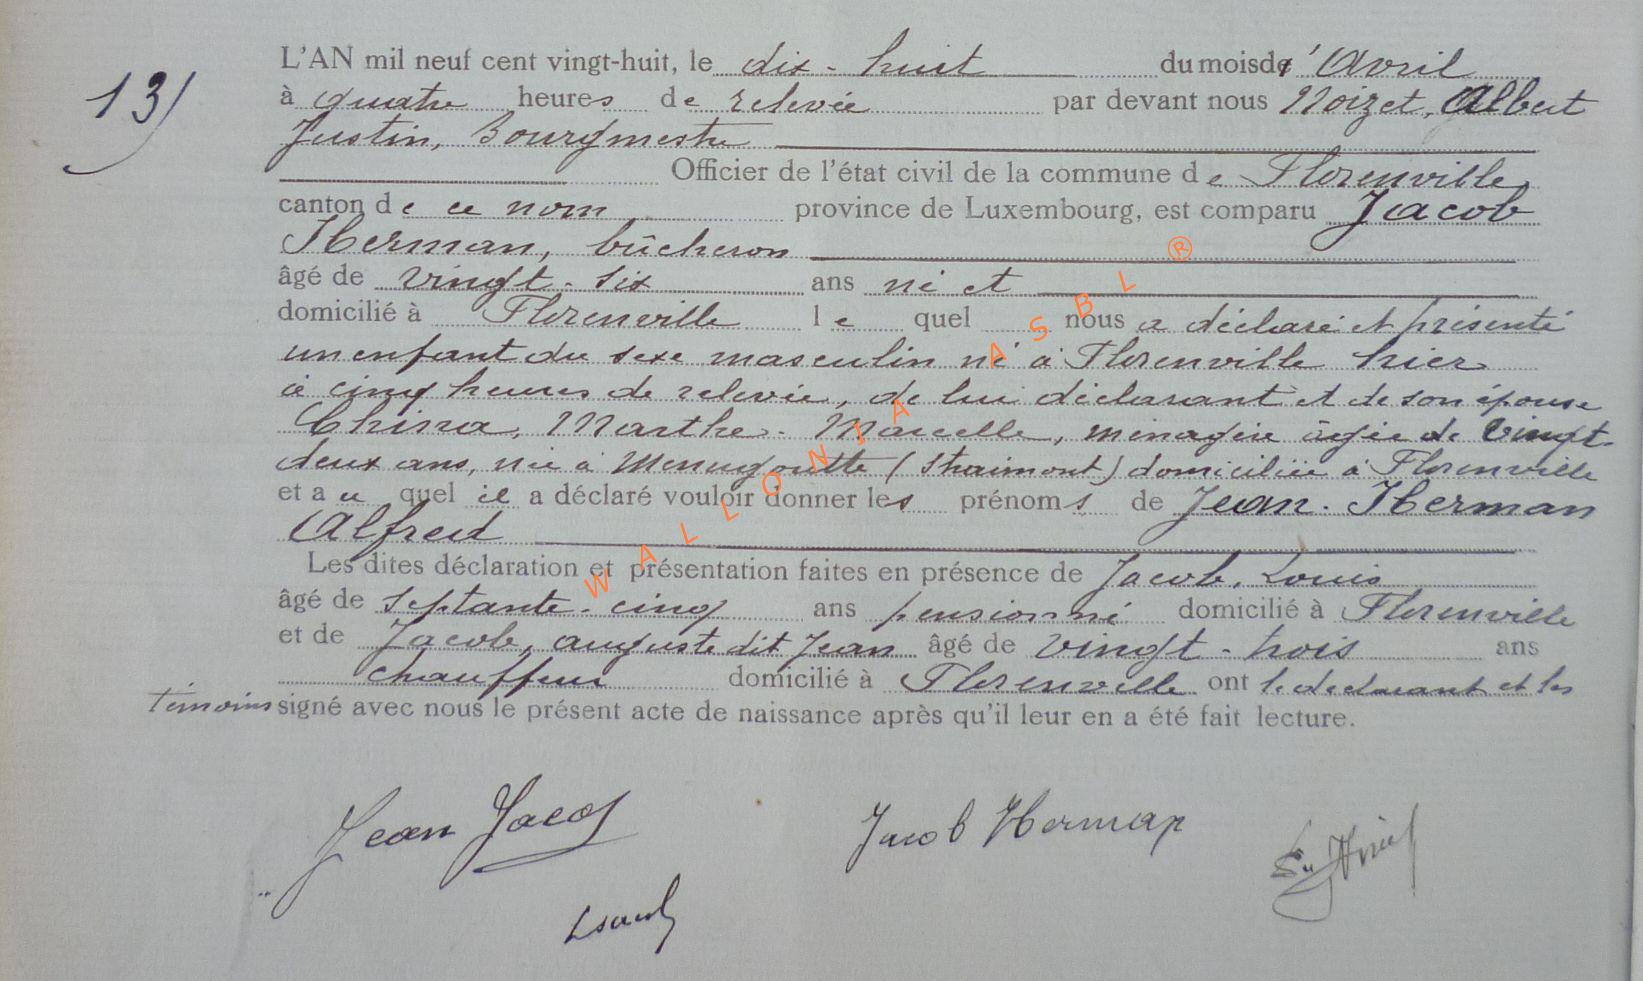 13)
L'AN mil neuf cent vingt-huit, le dix-huit du mois d'Avril
à quatre heures de relevée par devant nous Noizet, Albert
Justin, Bourgmestre
Officier de l'état civil de la commune de Florenville
canton de ce nom province de Luxembourg, est comparu Jacob
Herman, bûcheron
âgé de vingt-six ans né et
domicilié à Florenville le quel nous a déclaré et présenté
un enfant du sexe masculin né à Florenville hier
à cinq heures de relevée, de lui déclarant et de son épouse
China, Marthe-Marcelle, ménagère âgée de vingt-
deux ans, née à Menugoutte (Straimont) domiciliée à Florenville
et au quel il a déclaré vouloir donner les prénoms de Jean-Herman
Alfred
Les dites déclaration et présentation faites en présence de Jacob, Louis
âgé de septante-cinq ans pensionné domicilié à Florenville
et de Jacob, auguste dit Jean âgé de vingt-trois ans
chauffeur domicilié à Florenville ont le déclarant et les
témoins signé avec nous le présent acte de naissance après qu'il leur en a été fait lecture.
WALLONIA ASBL ®
Jean Jacob
Jacob Herman